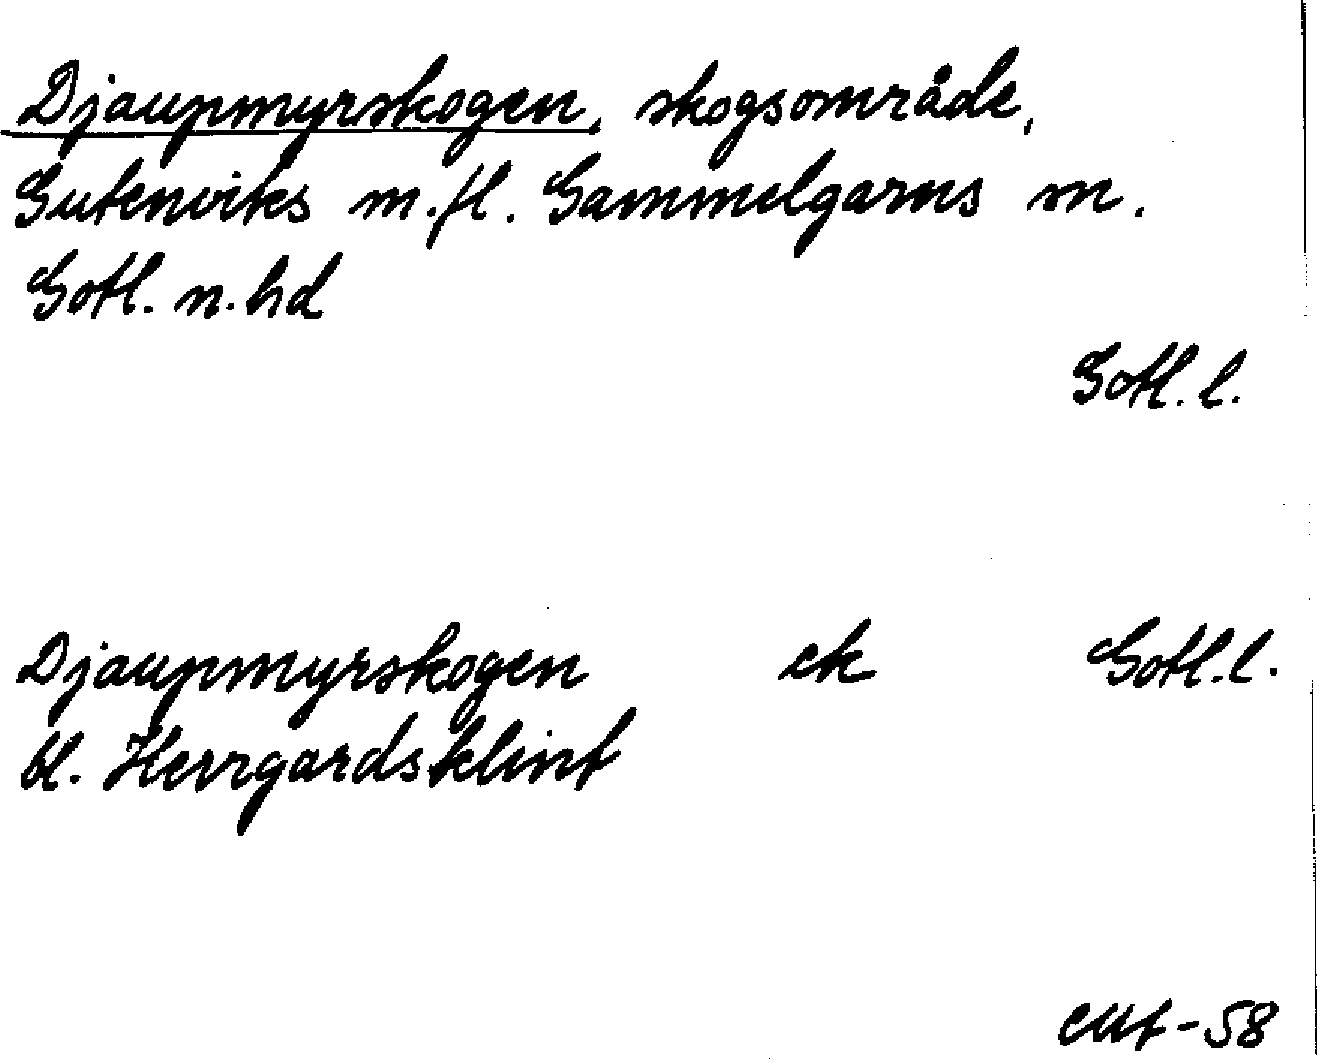 Djaupmyrskogen, skogsområde,
Gutenviks m.fl. Gammelgarns sn.
Gotl. n. hd
Gotl. l.
Djaupmyrskogen ek Gotl. l.
bl. Herrgardsklint
-58